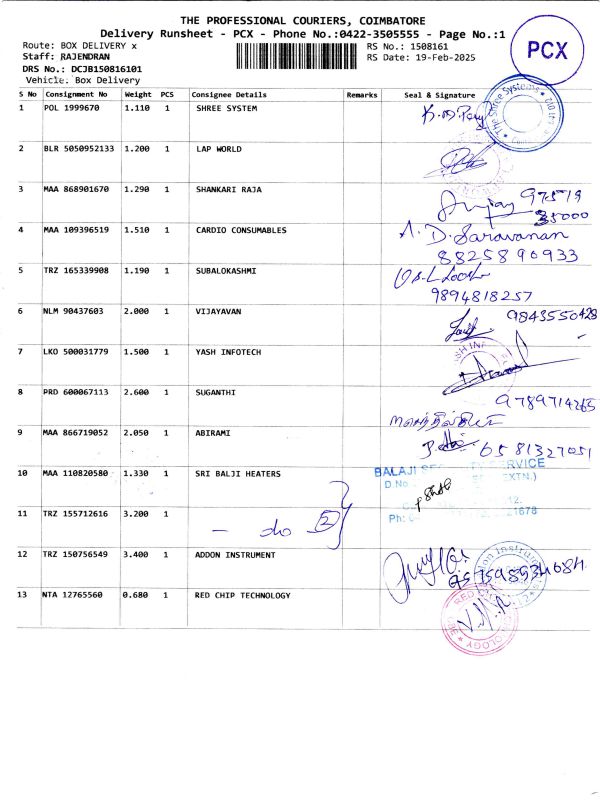 THE PROFESSIONAL COURIERS, COIMBATORE
Delivery Runsheet - PCX - Phone No.:0422-3505555 - Page No.:1
PCX
Route: BOX DELIVERY x
RS No.: 1508161
Staff: RAJENDRAN
RS Date: 19-Feb-2025
DRS No.: DCJB150816101
Vehicle: Box Delivery
S No Consignment No Weight PCS Consignee Details Remarks Seal & Signature
1 POL 1999670 1.110 1 SHREE SYSTEM
The Shree Systems
2 BLR 5050952133 1.200 1 LAP WORLD
3 MAA 868901670 1.290 1 SHANKARI RAJA
97519
35000
4 MAA 109396519 1.510 1 CARDIO CONSUMABLES
A. D. Saravanan
8825890933
5 TRZ 165339908 1.190 1 SUBALOKASHMI
9894818257
6 NLM 90437603 2.000 1 VIJAYAVAN
9843550428
7 LKO 500031779 1.500 1 YASH INFOTECH
8 PRD 600067113 2.600 1 SUGANTHI
9789714265
9 MAA 866719052 2.050 1 ABIRAMI
6581327051
10 MAA 110820580 1.330 1 SRI BALJI HEATERS
BALAJI SERVICE
D.No EXTN.)
12.
Ph: 21678
11 TRZ 155712616 3.200 1
- do 2
12 TRZ 150756549 3.400 1 ADDON INSTRUMENT
13 NTA 12765560 0.680 1 RED CHIP TECHNOLOGY